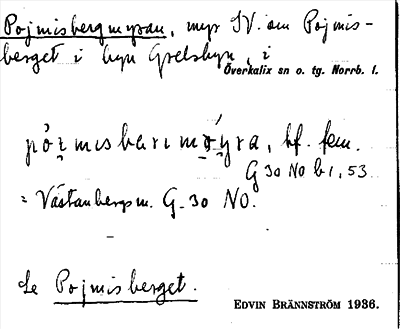 Pojmisbergmyran, myr SV. om Pojmis-
berget i byn Grelsbyn, i
Överkalix sn o. tg. Norrb. l.
pọ́ı̣mısbarımọ́yra, bf. fem.
G 30 NO b 1, 53.
= Västanbergsm. G. 30 NO.
Se Pojmisberget.
EDVIN BRÄNNSTRÖM 1936.